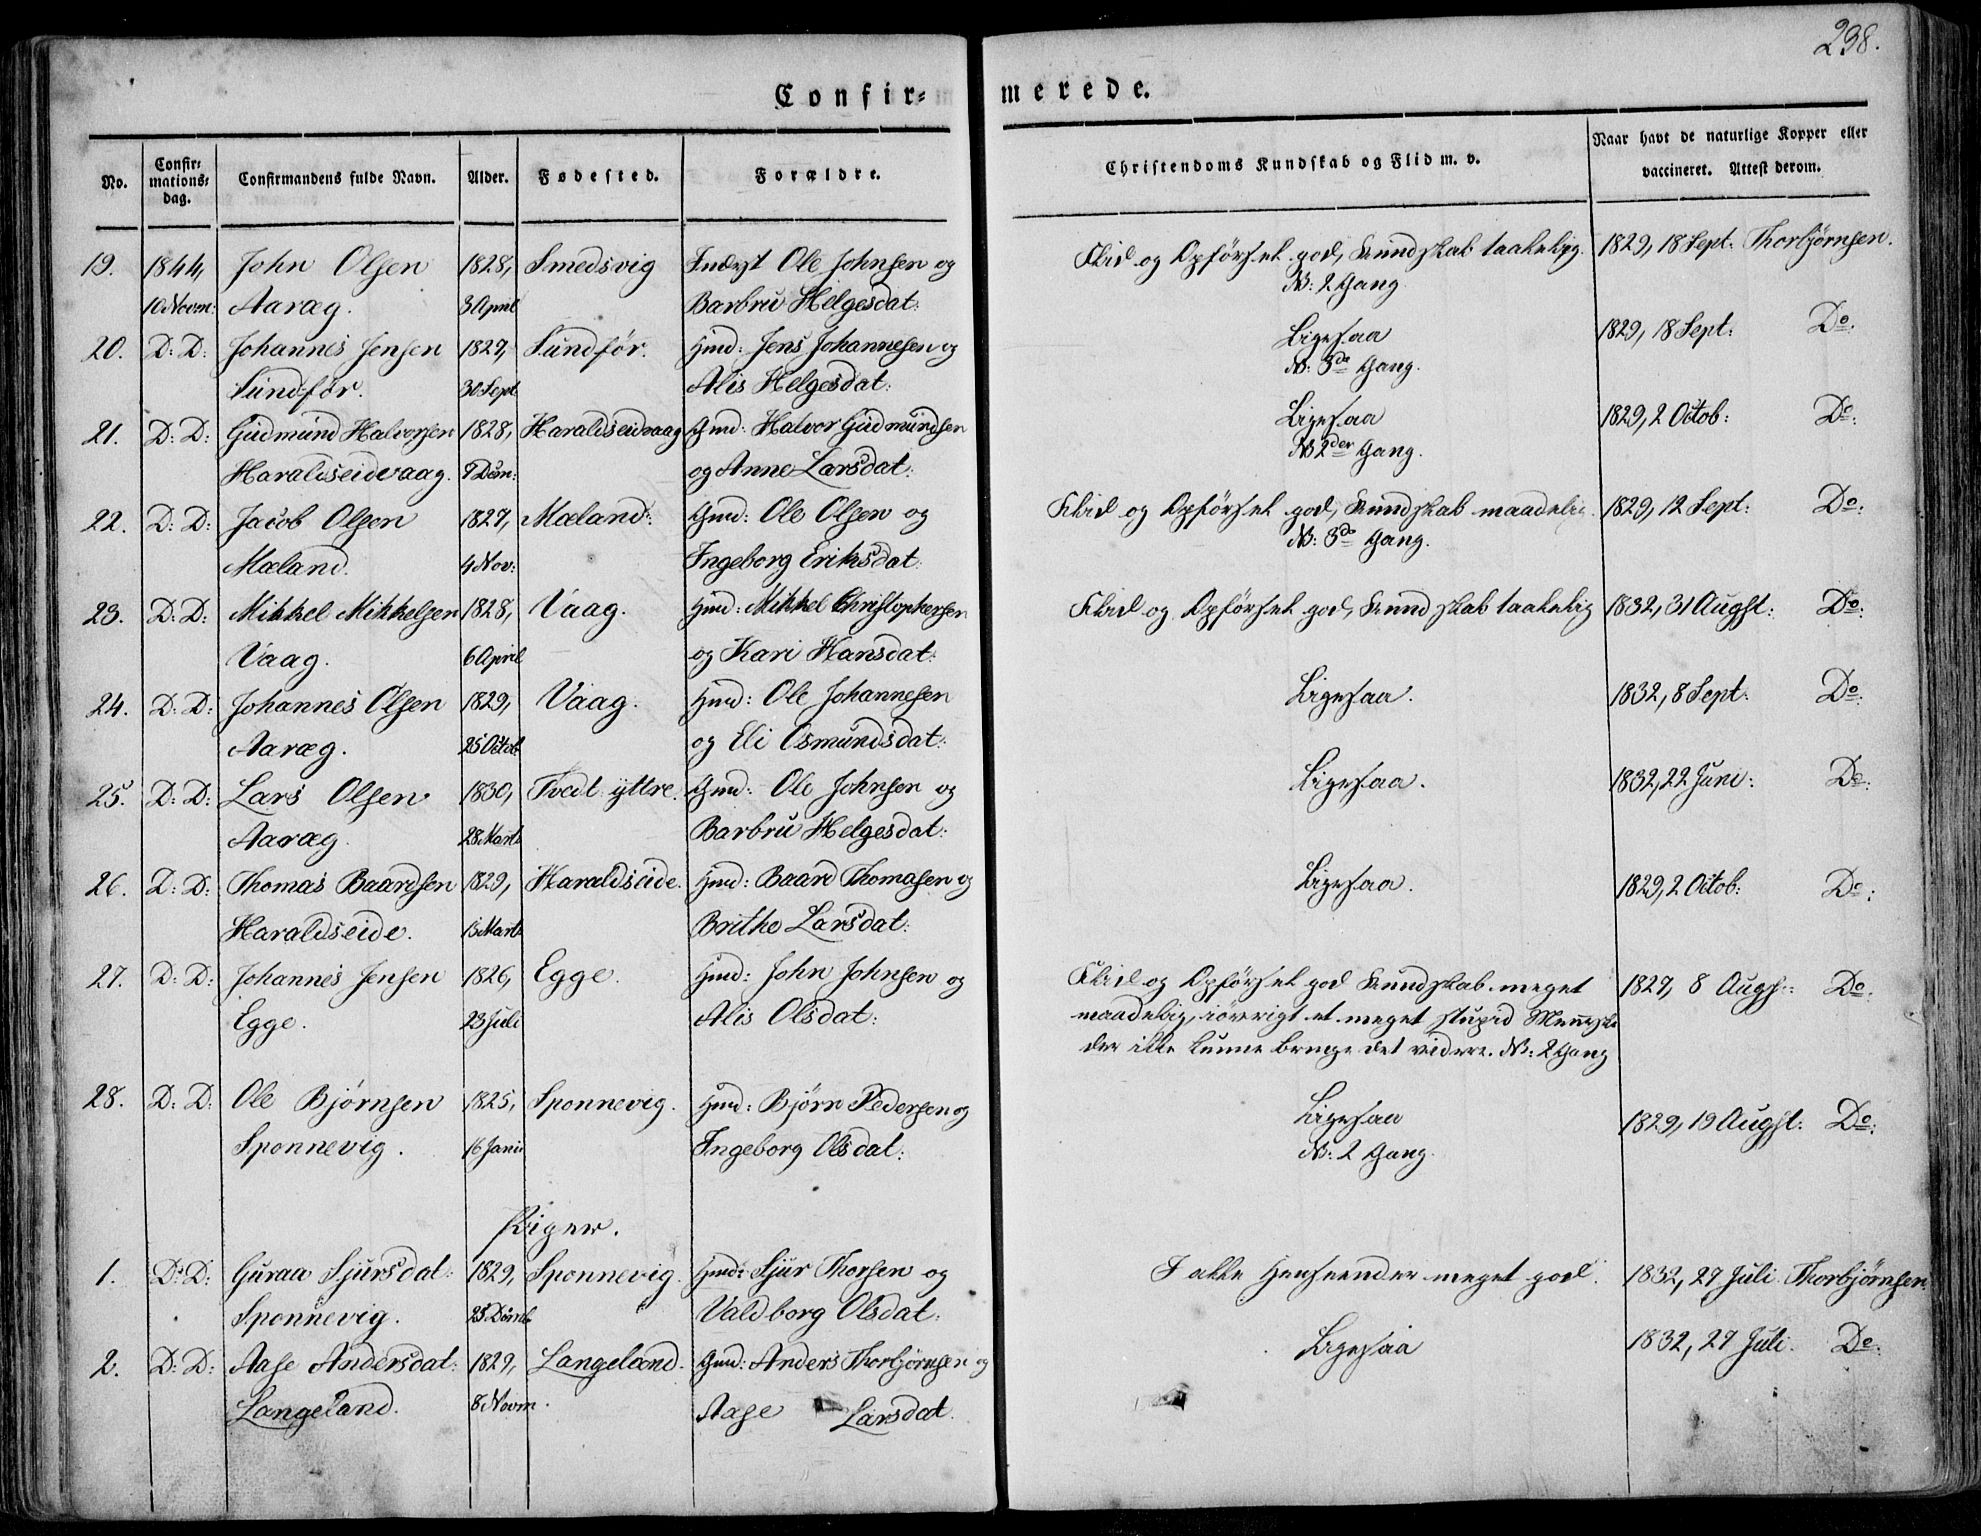 238.
Confir= merede.
No. Confir= mations= dag. Confirmandens fulde Navn. Alder. Fødested. Forældre. Christendoms Kundskab og Flid m. v. Naar havt de naturlige Kopper eller vaccineret. Attest derom.
19. 1844, John Olsen 1828, Smedsvig Inderst Ole Johnsen og Flid og Opførsel god, Kundskab taalelig. 1829, 18 Sept: Thorbjørnsen.
10 Novm: Aaræg. 3 April Barbru Helgesdat: NB: 2 Gang
20. D: D: Johannes Jensen 1827, Sundfør. Hmd: Jens Johannesen og Ligesaa 1829, 18 Sept: Do:
Sundfør. 30 Sept Alis Helgesdat: NB: 3de Gang.
21. D: D: Gudmund Halvorsen 1828, Haraldseidvaag Gmd: Halvor Gudmundsen Ligesaa 1829, 2 Octob: Do:
Haraldseidevaag. 7 Decm: og Anne Larsdat: NB 2der Gang.
22. D: D: Jacob Olsen 1827, Mæland: Gmd: Ole Olsen og Flid og Opførsel god, Kundskab maadelig. 1829, 12 Sept: Do:
Mæland. 4 Nov: Ingeborg Eriksdat: NB: 3de Gang.
23. D: D: Mikkel Mikkelsen 1828, Vaag. Hmd: Mikkel Christophersen Flid og Opførsel god, Kundskab taalelig 1832, 31 Augst: Do:
Vaag. 6 April og Kari Hansdat:
24. D: D: Johannes Olsen 1829, Vaag. Hmd: Ole Johannesen Ligesaa. 1832, 8 Sept: Do:
Aaræg. 25 Octob og Eli Osmundsdat:
25. D: D: Lars Olsen 1830, Tvedt yttre. Gmd: Ole Johnsen og Ligesaa. 1832, 22 Juni: Do:
Aaræg. 28 Marts Barbru Helgesdat:
26. D: D: Thomas Baardsen 1829, Haraldseide. Hmd: Baard Thomasen og Ligesaa. 1829, 2 Octob: Do:
Haraldseide. 15 Marts Brithe Larsdat:
27. D: D: Johannes Jensen 1826, Egge. Hmd: John Johnsen og Flid og Opførsel god Kundskab meget 1827, 8 Augst: Do:
Egge. 23 Juli Alis Olsdat: maadelig, iøvrigt et meget stupid Menneske
der ikke kunne bringe det videre. NB: 2 Gang
28. D: D: Ole Bjørnsen 1825, Sponnevig. Hmd: Bjørn Pedersen og Ligesaa 1829, 19 Augst: Do:
Sponnevig. 16 Janu Ingeborg Olsdat: NB: 2 Gang.
Piger.
1. D: D: Guraa Sjursdat: 1829, Sponnevig. Hmd: Sjur Thorsen og I alle Henseender meget god. 1832, 27 Juli Thorbjørnsen.
Sponnevig. 25 Decmb Valdborg Olsdat:
2. D: D: Aase Andersdat: 1829, Langeland. Gmd: Anders Thorbjørnsen og Ligesaa 1832, 27 Juli. Do:
Langeland. 8 Novm. Aase Larsdat.